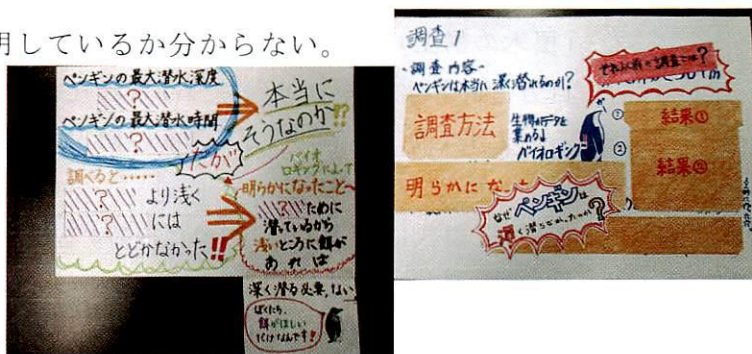 明しているか分からない。
ペンギンの最大潜水深度
?
ペンギンの最大潜水時間
?
だが
本当に
そうなのか!?
調べると……
? より浅く
? には
とどかなかった!!
バイオ
ロギングによって
明らかになったこと〜
? ために
潜っているから
浅いところに餌が
あれば
深く潜る必要、ない
ぼくたち、
餌がほしい
だけなんです!
調査1
-調査内容-
ペンギンは本当に深く潜れるのか?
それ以前の調査では?
調査方法
生物のデータを
集める
バイオロギング
①
結果①
②
結果②
明らかにな
なぜペンギンは